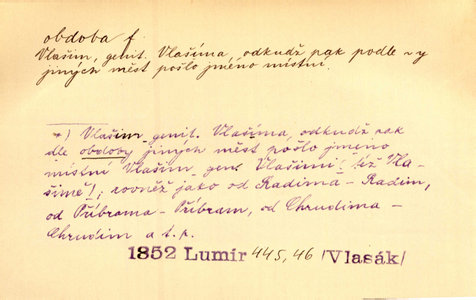 obdoba f.
Vlašim, genit. Vlašíma, odkudž pak podle ~y
jiných měst pošlo jméno místní.
*) Vlašim genit. Vlašíma, odkudž pak
dle obdoby jiných měst pošlo jméno
místní Vlašim, gen. Vlašimi (též Vla-
šimě); rovněž jako od Radima - Radim,
od Příbrama - Příbram, od Chrudima -
Chrudim a t. p.
1852 Lumír 445,46 /Vlasák/